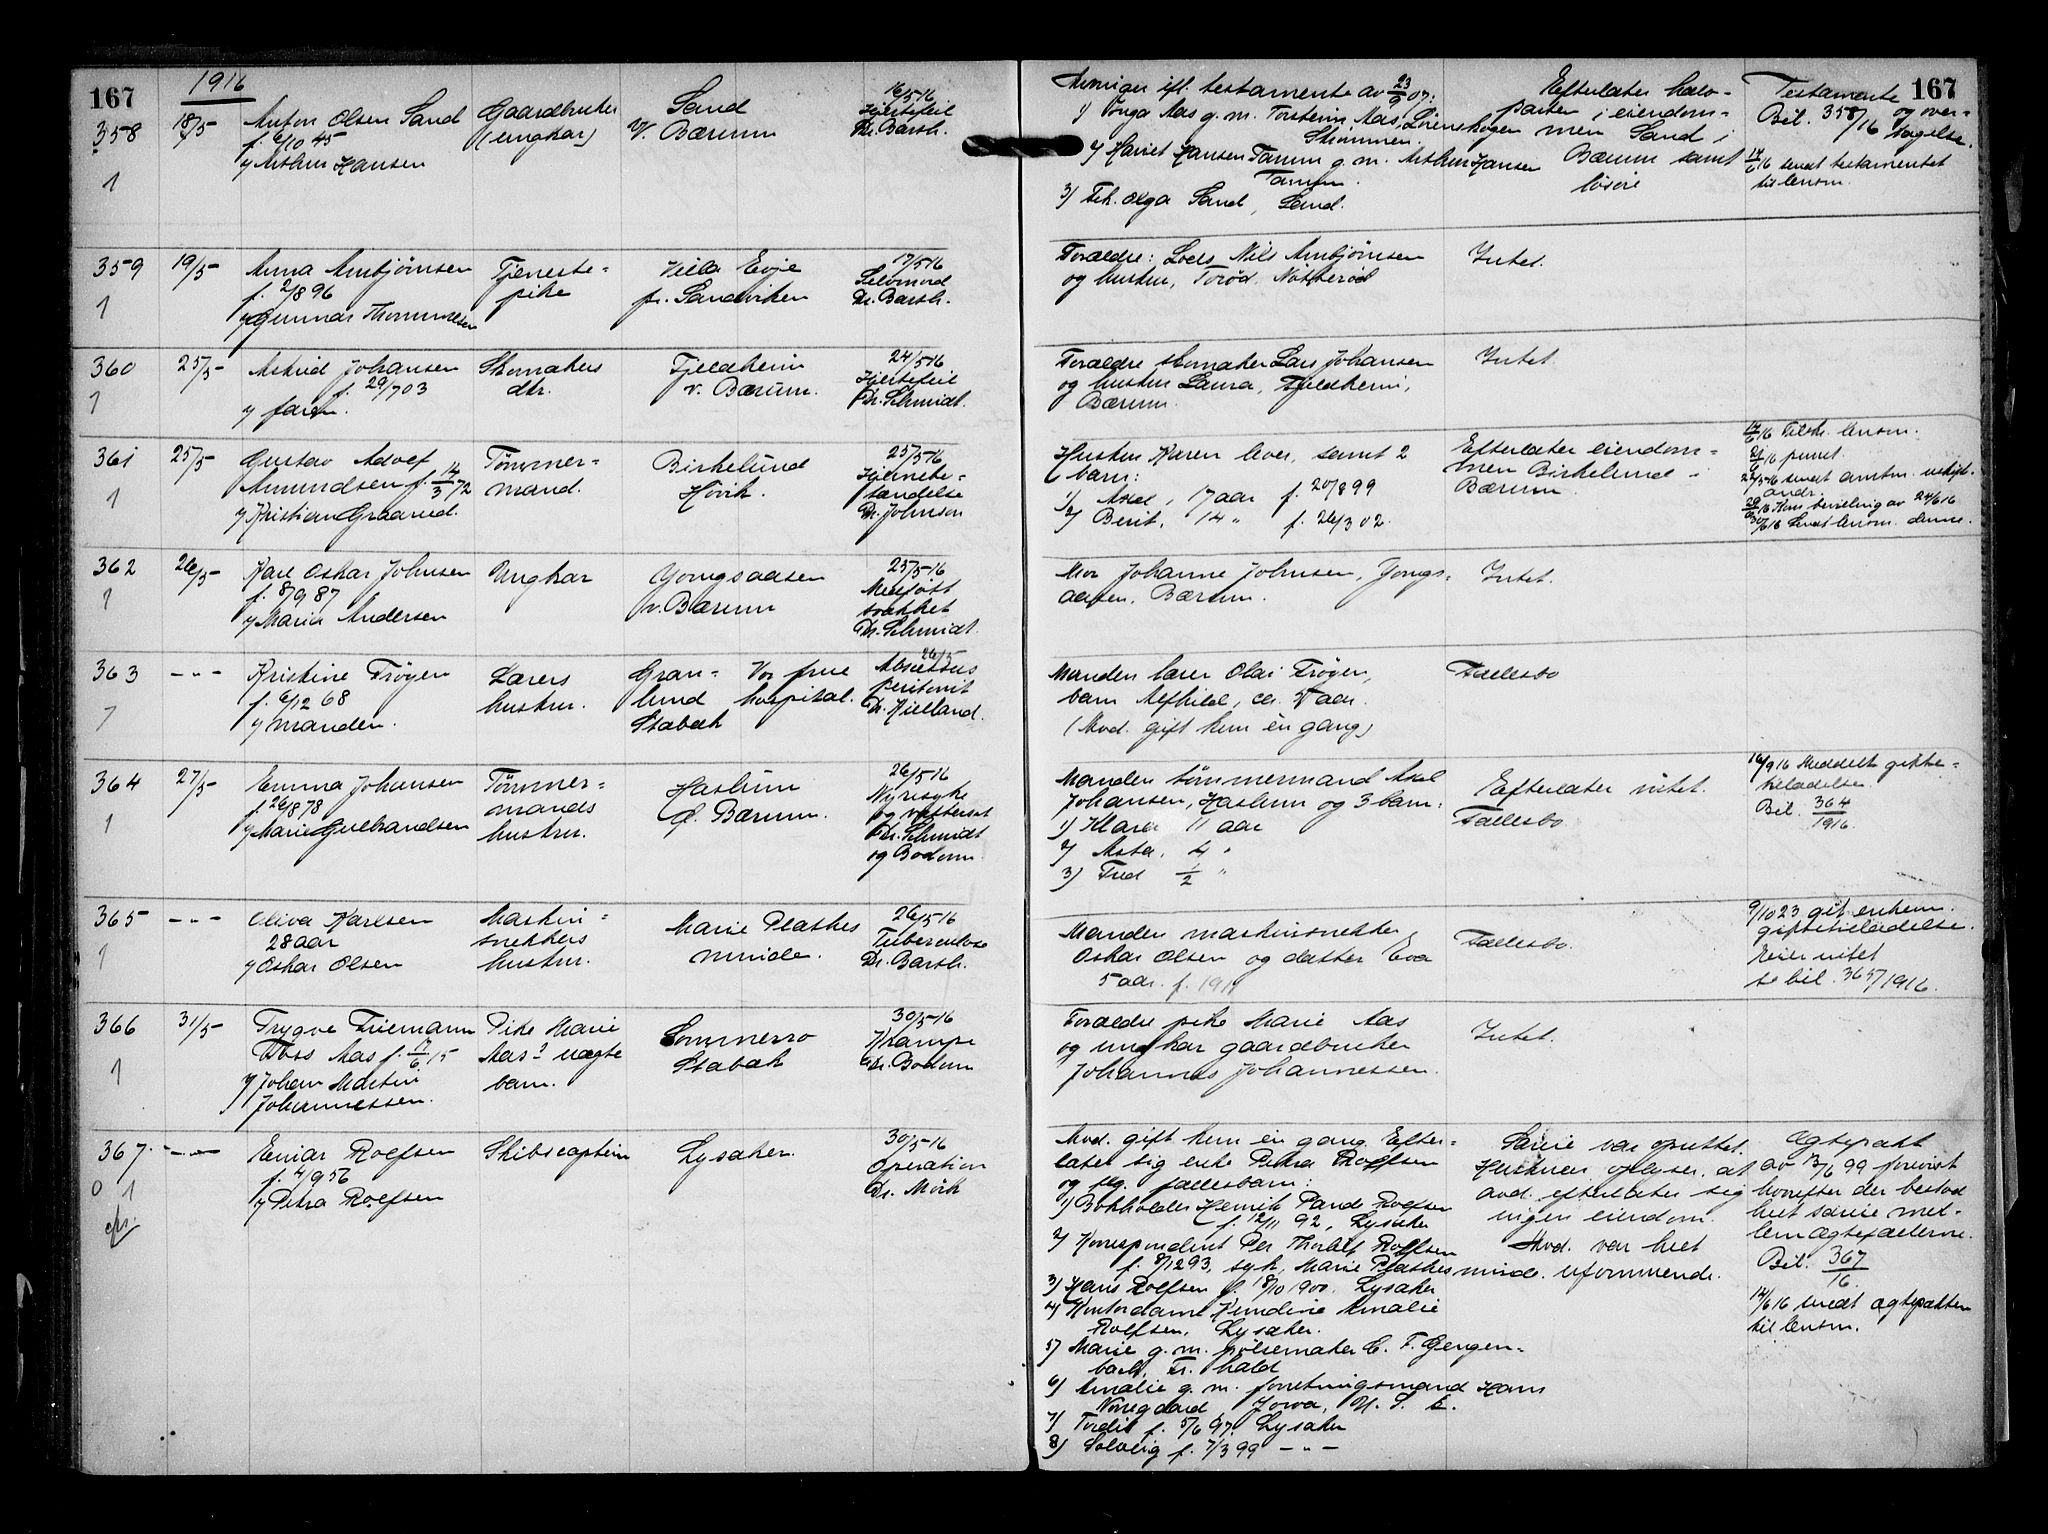 167
1916
358
18/5
Anton Olsen Sand
f. 6/10 45
v/ Arthur Hansen
Gaardbruker
(ungkar)
Sand
V. Bærum
16/5 16
Hjertefeil
Dr. Barth.
1
359
19/5
Anna Arnbjørnsen
f. 2/8 96
v/ Gunnar Thommesen
Tjeneste-
pike
Villa Evje
pr. Sandviken
17/5 16
Selvmord
Dr. Barth.
1
360
25/5
Astrid Johansen
f. 29/7 03
v/ faren.
Skomakers
dtr.
Fjeldheim
v. Bærum.
24/5 16
Hjertefeil
Dr. Schmidt.
1
361
25/5
Gustav Adolf
Amundsen f. 14/3 72
v/ Kristian Graarud.
Tømmer-
mand.
Birkelund
Høvik.
25/5 16
Hjernebe-
tændelse
Dr. Johnson
1
362
26/5
Karl Oskar Johnsen
f. 8/9 87
v/ Marie Andersen
Ungkar
Yongsaasen
v. Bærum
25/5 16
Dr. Schmidt.
1
363
- " -
Kristine Frøyen
f. 6/12 68
v/ manden.
Lærers
hustru.
Gran-
lund
Stabæk
Vor frue
hospital.
26/5
Abscessus
peritonit
Dr. Kielland.
364
27/5
Emma Johansen
f. 26/8 78
v/ Marie Gulbrandsen
Tømmer-
mands
hustru.
Haslum
Ø. Bærum.
26/5 16
Nyresyke
og vattersot
Dr. Schmidt
og Bodom.
1
365
- " -
Oliva Karlsen
28 aar
v/ Oskar Olsen
Maskin-
snekkers
hustru.
Marie Plathes
minde.
26/5 16
Tuberculose
Dr. Barth.
1
366
31/5
Trygve Friemann
Aas f. 17/6 15
v/ Johan Martin
Johannessen.
Pike Marie
Aas' uægte
barn.
Sommerro
Stabæk
30/5 16
Krampe
Dr. Bodom
1
367.
- " -
Einar Rolfsen
f. 4/9 56
v/ Petra Rolfsen
Skibscaptein
Lysaker.
30/5 16
Operation
Dr. Mörk
0 1
167
Arvinger ifl. testamente av 23/9 07:
1) Inga Aas g. m. Torstein Aas, Lørenskogen
Strømmen.
2) Harriet Hansen Tanum g. m. Arthur Hansen
Tanum.
3) Frk. Olga Sand, Sand.
Efterlater halv-
parten i eiendom-
men Sand i
Bærum samt
løsøre
Testamente og over-
Bil. 358/16 tagelse.
17/6 16 sendt testamentet
til lensm.
Forældre: Lods Nils Arnbjørnsen
og hustru, Torød, Nøtterød
Intet.
Forældre skomaker Lars Johansen
og hustru Laura, Fjeldheim,
Bærum.
Intet.
Hustru Karen lever, samt 2
barn:
1) Axel, 17 aar f. 20/8 99
2) Berit, 14 " f. 26/3 02.
Efterlater eiendom-
men Birkelund i
Bærum.
17/6 16 Tilskr. lensm.
21/6 16 purret.
sendt amtm. uskift.
andr.
Kom bevilling av 24/6 16
30/6 16 Sendt lensm. denne.
Mor Johanne Johnsen, Jongs-
aasen, Bærum.
Intet.
Manden lærer Olai Frøyen,
barn Alfhild, ca. 7 aar.
(Avd. gift kun èn gang)
Fællesbo
Manden tømmermand Axel
Johansen, Haslum og 3 barn:
1) Klara 11 aar
2) Asta, 4 "
3) Fred 1/2 "
Efterlater intet.
Fællesbo
16/9 16 Meddelt gifte-
tilladelse.
Bil. 364/1916.
Manden maskinsnekker
Oskar Olsen og datter Eva
5 aar. f. 1911
Fællesbo.
9/10 23 git enkem.
giftetilladelse.
Eier intet
se bil. 365/1916.
Forældre pike Marie Aas
og ungkar gaardbruker
Johannes Johannessen.
Intet.
Avd. gift kun èn gang. Efter-
later sig enke Petra Rolfsen
og flg. fællesbarn:
1) Bokholder Henrik Pande Rolfsen
f. 12/11 92, Lysaker
2) Korrespondent Per Thorleif Rolfsen
f. 8/12 93, syk, Marie Plathes minde.
3) Hans Rolfsen f. 18/10 1900. Lysaker
4) Kontordame Amalie
Rolfsen, Lysaker.
5) Marie g. m. pølsemaker C. F. Gergen-
bach, Fr. hald
6) Amalie g. m. forretningsmand Hans
Nørregaard, Jowa, U. S. A.
7) Tordis f. 5/6 97. Lysaker
8) Solveig f. 7/3 99 - " -
Særeie var oprettet.
Hustruen oplyser at
avd. efterlater sig
ingen eiendom.
Avd. var helt
uformuende.
Ægtepakt
av 13/6 99 forevist
hvorefter der bestod
helt særeie mel-
lem ægtefællerne.
Bil. 367/16.
14/6 16 sendt ægtepakten
til lensm.